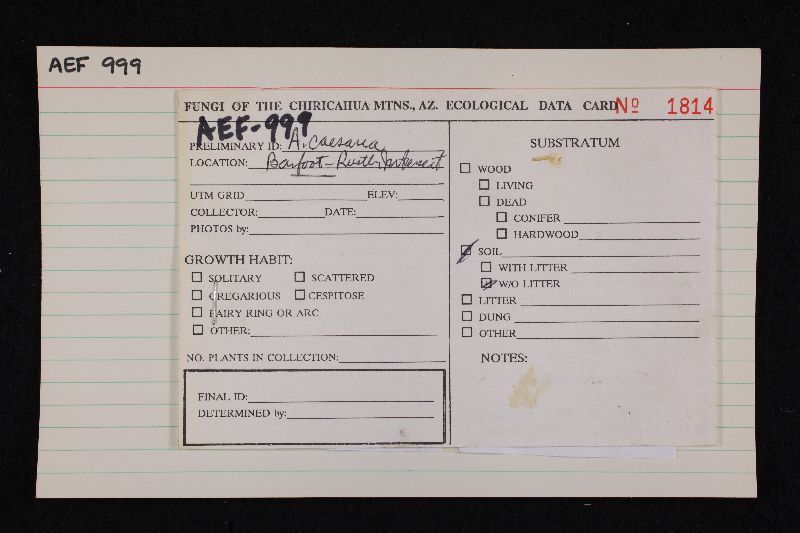 AEF 999
FUNGI OF THE CHIRICAHUA MTNS., AZ. ECOLOGICAL DATA CARD Nº 1814
AEF-999
PRELIMINARY ID: A. caesarea
LOCATION: Barfoot-Rustler
UTM GRID ELEV:
COLLECTOR: DATE:
PHOTOS by:
GROWTH HABIT:
SOLITARY SCATTERED
GREGARIOUS CESPITOSE
FAIRY RING OR ARC
OTHER:
NO. PLANTS IN COLLECTION:
FINAL ID:
DETERMINED by:
SUBSTRATUM
WOOD
LIVING
DEAD
CONIFER
HARDWOOD
SOIL
WITH LITTER
W/O LITTER
LITTER
DUNG
OTHER
NOTES: